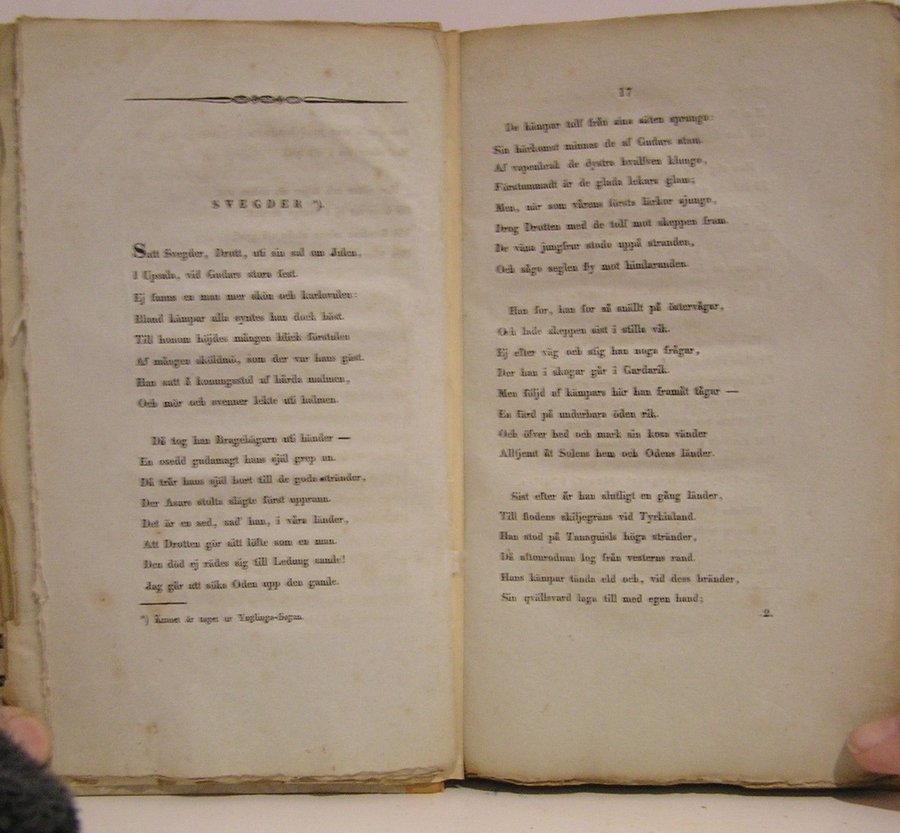 SVEGDER *).
Satt Svegder, Drott, uti sin sal om Julen,
I Upsala, vid Gudars stora fest.
Ej fanns en man mer skön och karlavulen:
Bland kämpar alla syntes han dock bäst.
Till honom höjdes mången blick förstulen
Af mången sköldmö, som der var hans gäst.
Han satt å konungsstol af hårda malmen,
Och mör och svenner lekte uti halmen.
Då tog han Bragebägarn uti händer —
En osedd gudamagt hans själ grep an.
Då trår hans själ bort till de goda stränder,
Der Asars stolta slägte först upprann.
Det är en sed, sad' han, i våra länder,
Att Drotten gör sitt löfte som en man.
Den död ej rädes sig till Ledung sande!
Jag går att söka Oden upp den gamle.
*) Ämnet är taget ur Ynglinga-Sagan.
17
De kämpar tolf från sina säten sprungo:
Sin härkomst minnas de af Gudars stam.
Af vapenbrak de dystra hvalfven klungo,
Förstummadt är de glada lekars glam;
Men, när som vårens första lärkor sjungo,
Drog Drotten med de tolf mot skeppen fram.
De väna jungfrur stodo uppå stranden,
Och sågo seglen fly mot himlaranden.
Han for, han for så snällt på östervågar,
Och lade skeppen sist i stilla vik.
Ej efter väg och stig han noga frågar,
Der han i skogar går i Gardarik.
Men följd af kämpars här han framåt tågar —
En färd på underbara öden rik.
Och öfver hed och mark sin kosa vänder
Alltjemt åt Solens hem och Odens länder.
Sist efter år han slutligt en gång länder,
Till flodens skiljegräns vid Tyrkialand.
Han stod på Tanaquisls höga stränder,
Då aftonrodnan log från vesterns rand.
Hans kämpar tända eld och, vid dess bränder,
Sin qvällsvard laga till med egen hand;
2.